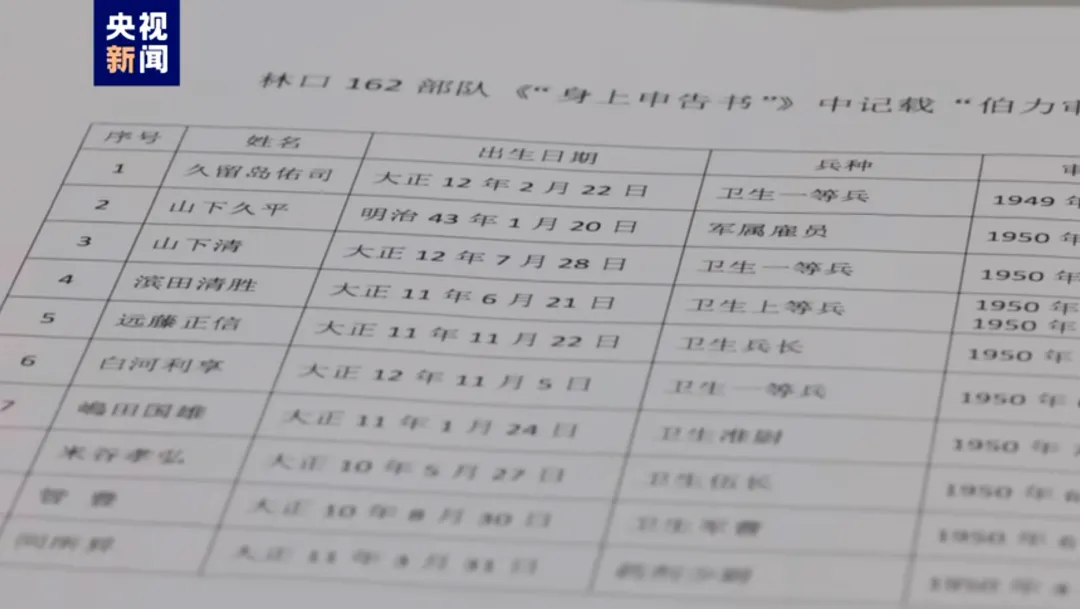 央视
新闻
林口 162 部队《“身上申告书”》中记载“伯力审
序号 姓名 出生日期 兵种 审
1 久留岛佑司 大正 12 年 2 月 22 日 卫生一等兵 1949 年
2 山下久平 明治 43 年 1 月 20 日 军属雇员 1950 年
3 山下清 大正 12 年 7 月 28 日 卫生一等兵 1950 年
4 滨田清胜 大正 11 年 6 月 21 日 卫生上等兵 1950 年
1950 年
5 远藤正信 大正 11 年 11 月 22 日 卫生兵长 1950 年
6 白河利享 大正 12 年 11 月 5 日 卫生一等兵 1950 年
7 嶋田国雄 大正 11 年 1 月 24 日 卫生准尉 1950 年
米谷孝弘 大正 10 年 5 月 27 日 卫生伍长 1950 年 6
大正 10 年 8 月 30 日 卫生军曹 1950 年 6
大正 11 年 3 月 31 日 药剂少尉 1950 年